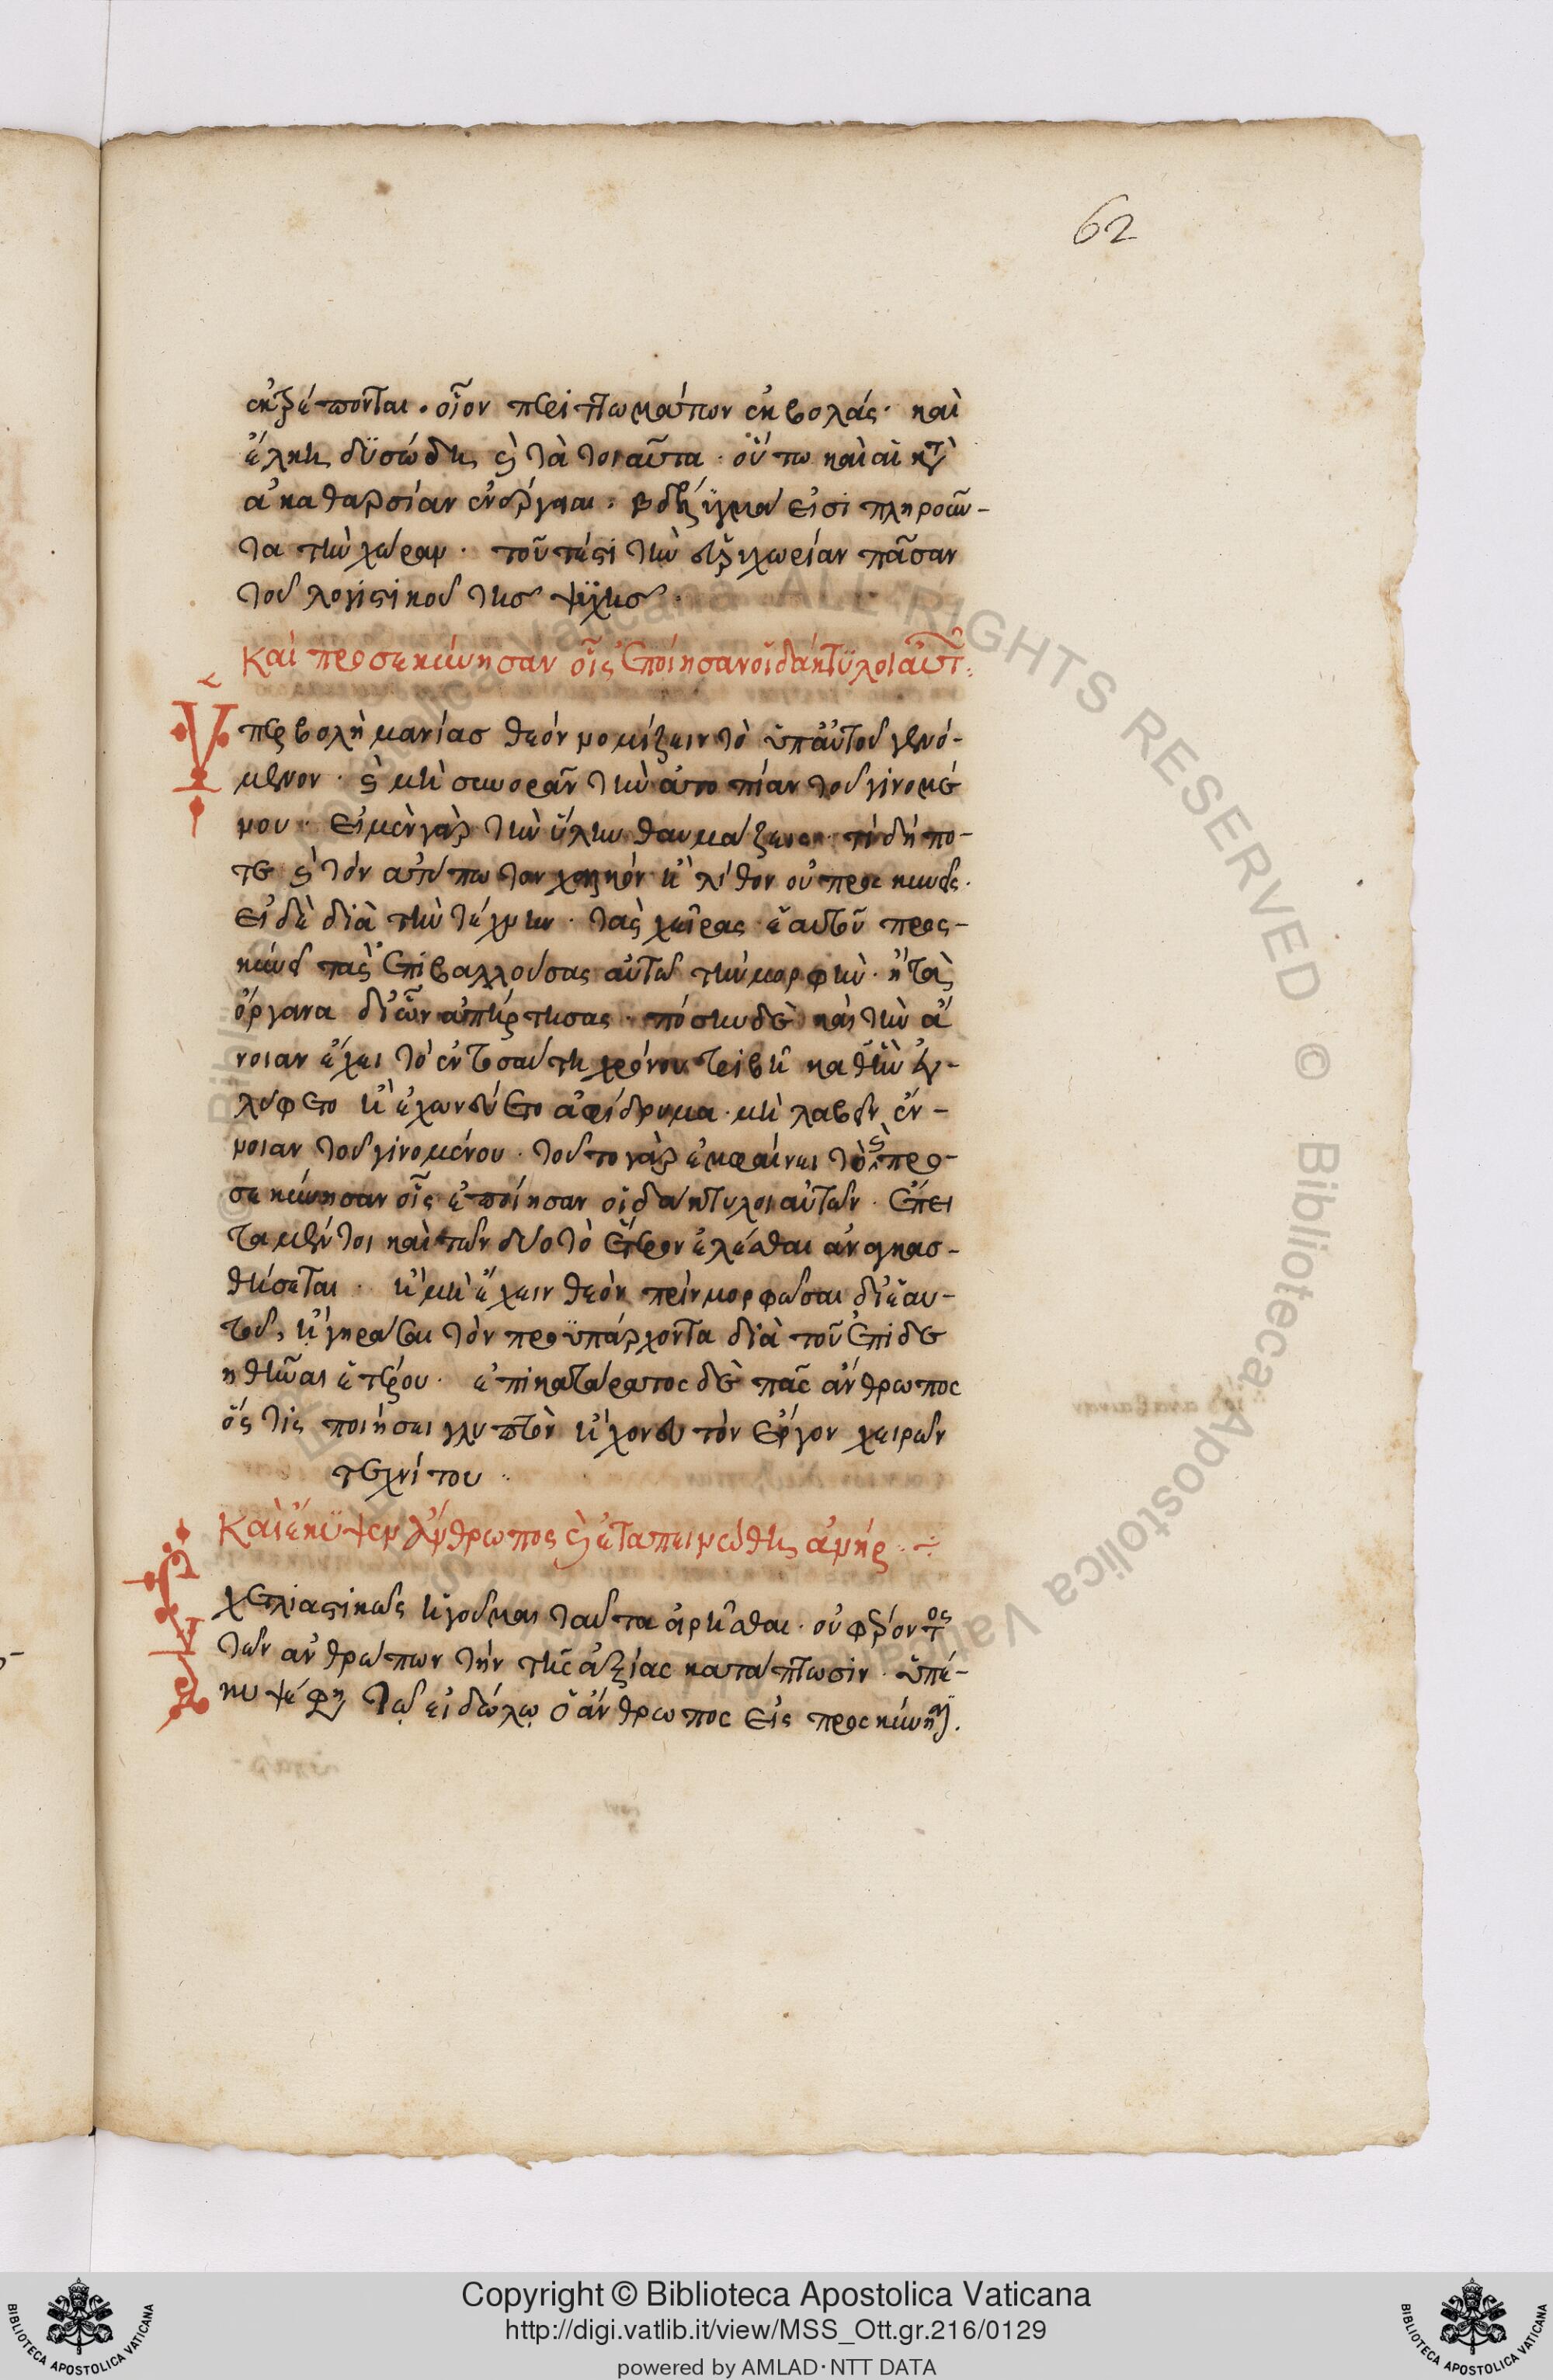 62
ἐκτρέπονται. οἷον περὶ πτωμάτων ἐκβολάς. καὶ
ἕλκη δυσώδη, καὶ τὰ τοιαῦτα. οὕτω καὶ αἱ κατὰ
ἀκαθαρσίαν ἐνέργειαι. βδελύγματά εἰσι πληροῦν-
τα τὴν χώραν. τουτέστι τὴν εὐρυχωρίαν πᾶσαν
τοῦ λογιστικοῦ τῆς ψυχῆς.
Καὶ προσεκύνησαν οἷς ἐποίησαν οἱ δάκτυλοι αὐτῶν:
Ὑπερβολὴ μανίας θεὸν νομίζειν τὸ ὑπ' αὐτοῦ γενό-
μενον. καὶ μὴ συνορᾶν τὴν ἀτοπίαν τοῦ γινομέ
νου. εἰ μὲν γὰρ τὴν ὕλην θαυμάζεις. τί δήπο-
τε καὶ τὸν ἀτύπωτον χαλκὸν ἢ λίθον οὐ προσκυνεῖς.
εἰ δὲ διὰ τὴν τέχνην. τὰς χεῖρας ἑαυτοῦ προσ-
κύνει τὰς ἐπιβαλλούσας αὐτῶ τὴν μορφήν. ἢ τὰ
ὄργανα δι' ὧν ἀπήρτησας. πόσην δὲ καὶ τὴν ἄ
νοιαν ἔχει τὸ ἐν τοσαύτη χρόνου τριβῆ καθ' ἣν ἐγ-
λύφετο ἢ ἐχωνεύετο ἀφίδρυμα. μὴ λαβεῖν ἔν-
νοιαν τοῦ γινομένου. τοῦτο γὰρ ἐμφαίνει τὸ καὶ προ-
σεκύνησαν οἷς ἐποίησαν οἱ δάκτυλοι αὐτῶν. ἔπει
τα μέντοι καὶ τῶν δύο τὸ ἕτερον ἑλέσθαι ἀναγκασ-
θήσεται. ἢ μὴ ἔχειν θεὸν πρὶν μορφῶσαι δι' ἑαυ-
τοῦ, ἢ γηρᾶσαι τὸν προϋπάρχοντα διὰ τοῦ ἐπιδε
ηθῆναι ἑτέρου. ἐπικατάρατος δὲ πᾶς ἄνθρωπος
ὅστις ποιήσει γλυπτὸν ἢ χονευτὸν ἔργον χειρῶν
τεχνίτου.
Καὶ ἔκυψεν ἄνθρωπος καὶ ἐταπεινώθη ἀνήρ.
Σχετλιαστικῶς ἡγοῦμαι ταῦτα εἰρῆσθαι. οὐ φέροντος
τῶν ἀνθρώπων τὴν τῆς ἀξίας κατάπτωσιν. ὑπέ-
κυψέ φησι τῷ εἰδώλῳ ὁ ἄνθρωπος εἰς προσκύνησιν.
Copyright © Biblioteca Apostolica Vaticana
http://digi.vatlib.it/view/MSS_Ott.gr.216/0129
powered by AMLAD·NTT DATA